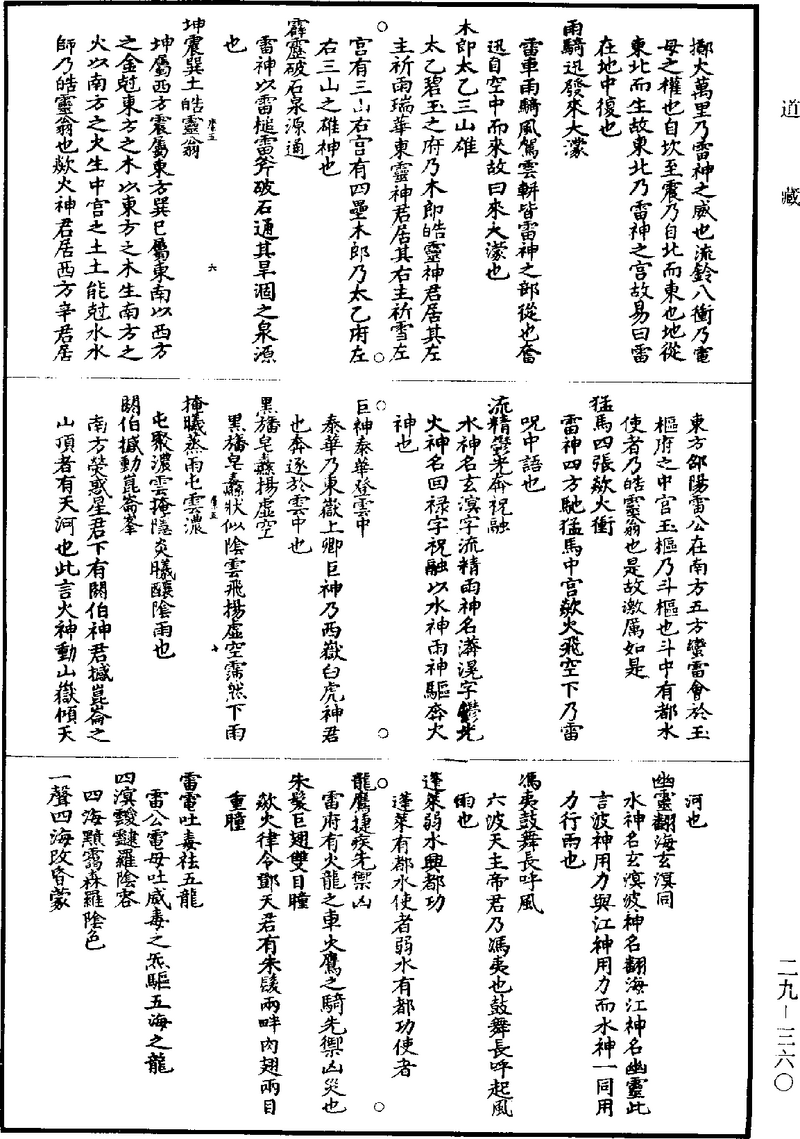 道藏
擲火萬里乃雷神之威也流鈴八衝乃電
母之權也自坎至震乃自北而東也地從
東北而生故東北乃雷神之宮故易曰雷
在地中復也
雨騎迅發來大濛
雷車雨騎風駕雲軿皆雷神之部從也奮
迅自空中而來故曰來大濛也
木郎太乙三山雄
太乙碧玉之府乃木郎皓靈神君居其左
主祈雨瑞華東靈神君居其右主祈雪左
宮有三山右宮有四壘木郎乃太乙府左
右三山之雄神也
霹靂破石泉源通
雷神以雷槌雷斧破石通其旱涸之泉源
也
坤震巽土皓靈翁
坤屬西方震屬東方巽巳屬東南以西方
之金尅東方之木以東方之木生南方之
火以南方之火生中宮之土土能尅水水
師乃皓靈翁也歘火神君居西方辛君居
六
東方鄧陽雷公在南方五方蠻雷會於玉
樞府之中宮玉樞乃斗樞也斗中有都水
使者乃皓靈翁也是故激厲如是
猛馬四張歘火衝
雷神四方馳猛馬中宮歘火飛空下乃雷
呪中語也
流精鬱光奔祝融
水神名玄溟字流精雨神名濟滉字鬱光
火神名回祿字祝融以水神雨神驅奔火
神也
巨神泰華登雲中
泰華乃東嶽上卿巨神乃西嶽白虎神君
也奔逐於雲中也
黑旛皂纛揚虛空
黑旛皂纛狀似陰雲飛揚虛空霈然下雨
掩曦蒸雨屯雲濃
屯聚濃雲掩隱炎曦釀陰雨也
閼伯撼動崑崙峯
南方熒惑星君下有閼伯神君撼崑崙之
山頂者有天河也此言火神動山嶽傾天
七
河也
幽靈翻海玄溟同
水神名玄溟波神名翻海江神名幽靈此
言波神用力與江神用力而水神一同用
力行雨也
馮夷鼓舞長呼風
六波天主帝君乃馮夷也鼓舞長呼起風
雨也
蓬萊弱水興都功
蓬萊有都水使者弱水有都功使者
龍鷹捷疾先禦凶
雷府有火龍之車火鷹之騎先禦凶災也
朱髮巨翅雙目瞳
歘火律令鄧天君有朱髮兩畔肉翅兩目
重瞳
雷電吐毒袪五龍
雷公電母吐威毒之炁驅五海之龍
四溟羅陰容
四海黯靄森羅陰色
一聲四海改昏蒙
二九－三六〇